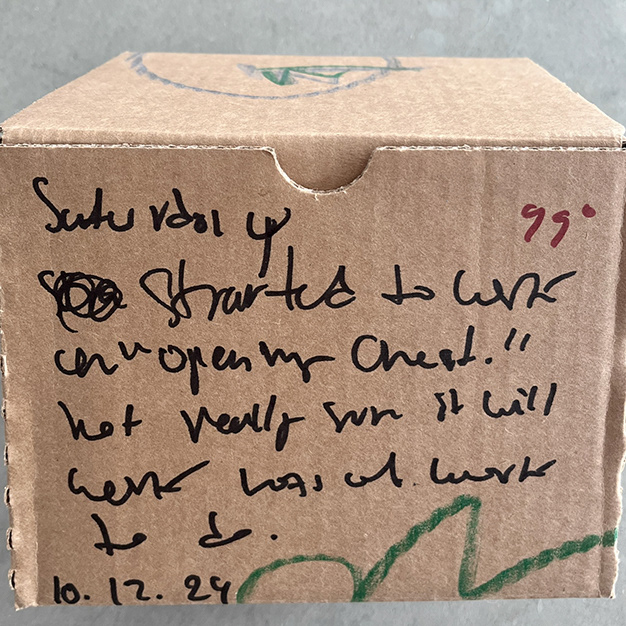 Saturday
99°
Started to work
on "opening Chest."
not really sure it will
work lots of work
to do.
10.12.24